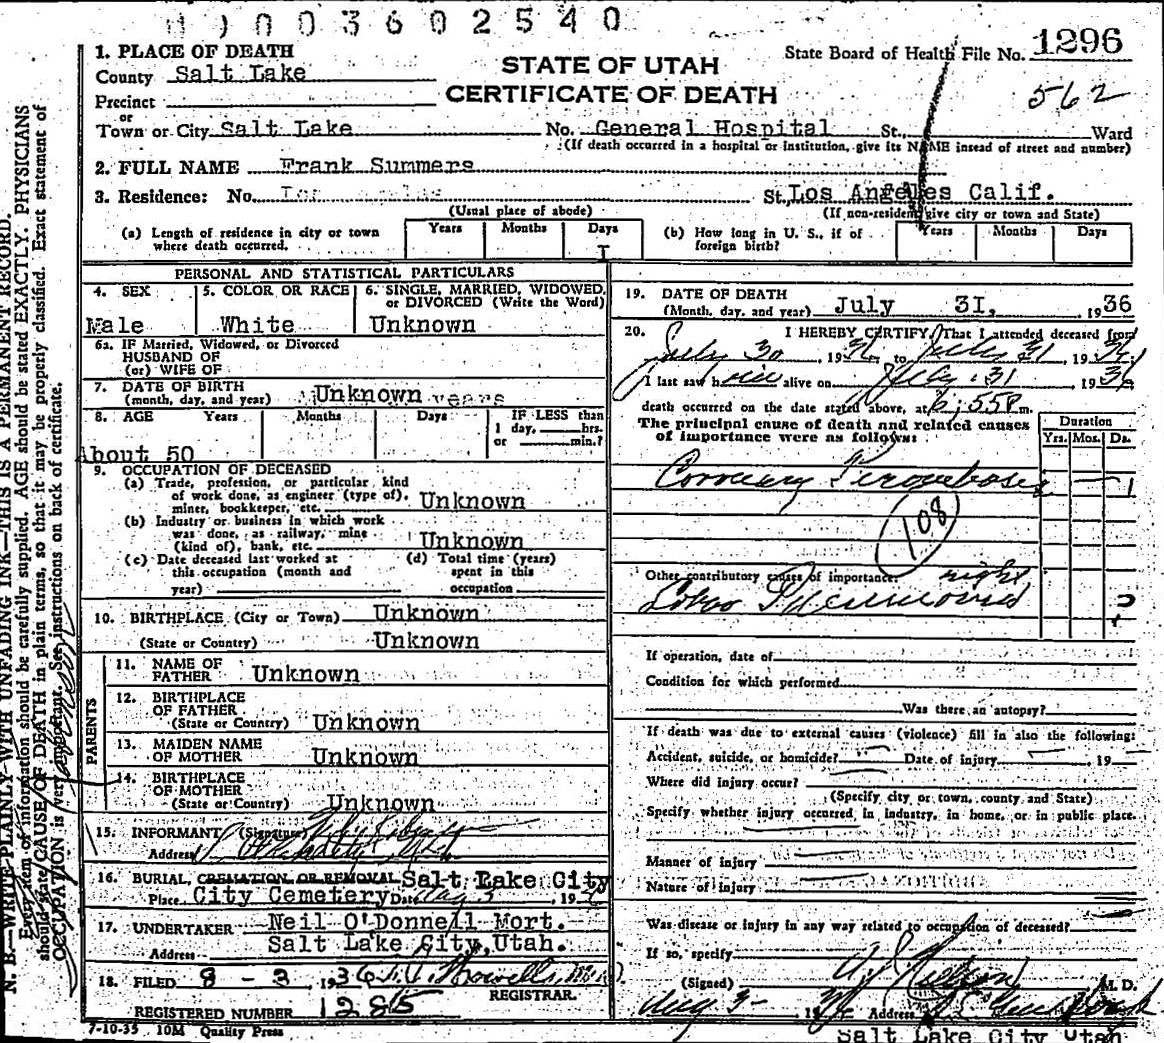 1003602540
State Board of Health File No. 1296
562
1. PLACE OF DEATH
County Salt Lake
STATE OF UTAH
CERTIFICATE OF DEATH
Precinct
or
Town or City Salt Lake No. General Hospital St., Ward
(If death occurred in a hospital or institution, give its NAME insead of street and number)
2. FULL NAME Frank Summers
3. Residence: No. St., Los Angeles Calif.
(Usual place of abode) (If non-resident give city or town and State)
(a) Length of residence in city or town where death occurred. Years Months Days 1
(b) How long in U. S., if of foreign birth? Years Months Days
PERSONAL AND STATISTICAL PARTICULARS
4. SEX 5. COLOR OR RACE 6. SINGLE, MARRIED, WIDOWED, or DIVORCED (Write the Word)
Male White Unknown
6a. IF Married, Widowed, or Divorced
HUSBAND OF
(or) WIFE OF
7. DATE OF BIRTH
(month, day, and year) Unknown years
8. AGE Years Months Days IF LESS than
1 day, hrs.
or min.?
About 50
9. OCCUPATION OF DECEASED
(a) Trade, profession, or particular kind
of work done, as engineer (type of),
miner, bookkeeper, etc. Unknown
(b) Industry or business in which work
was done, as railway, mine
(kind of), bank, etc. Unknown
(c) Date deceased last worked at
this occupation (month and
year)
(d) Total time (years)
spent in this
occupation
10. BIRTHPLACE (City or Town) Unknown
(State or Country) Unknown
PARENTS
11. NAME OF
FATHER Unknown
12. BIRTHPLACE
OF FATHER
(State or Country) Unknown
13. MAIDEN NAME
OF MOTHER Unknown
14. BIRTHPLACE
OF MOTHER
(State or Country) Unknown
15. INFORMANT (Signature)
Address
16. BURIAL, CREMATION OR REMOVAL Salt Lake City
Place City Cemetery Date Aug 3, 1936
17. UNDERTAKER Neil O'Donnell Mort.
Address Salt Lake City, Utah.
18. FILED 8 - 3, 1936
REGISTRAR.
REGISTERED NUMBER 1285
7-10-35 10M Quality Press
19. DATE OF DEATH
(Month, day, and year) July 31, 1936
20. I HEREBY CERTIFY, That I attended deceased from
July 30, 1936, to July 31, 1936,
I last saw him alive on July 31 1936,
death occurred on the date stated above, at 6:55 P m.
The principal cause of death and related causes
of importance were as follows:
Duration
Yrs. Mos. Ds.
Coronary Thrombosis 1
108
Other contributory causes of importance:
right
Lobar Pneumonia 2
If operation, date of
Condition for which performed
Was there an autopsy?
If death was due to external causes (violence) fill in also the following:
Accident, suicide, or homicide? Date of injury 19
Where did injury occur?
(Specify city or town, county and State)
Specify whether injury occurred in industry, in home, or in public place.
Manner of injury
Nature of injury
Was disease or injury in any way related to occupation of deceased?
If so, specify
(Signed) M. D.
Aug 3 1936 Address
Salt Lake City Utah
N. B.—WRITE PLAINLY WITH UNFADING INK—THIS IS A PERMANENT RECORD.
Every item of information should be carefully supplied. AGE should be stated EXACTLY. PHYSICIANS
should state CAUSE OF DEATH in plain terms, so that it may be properly classified. Exact statement of
OCCUPATION is very important. See instructions on back of certificate.